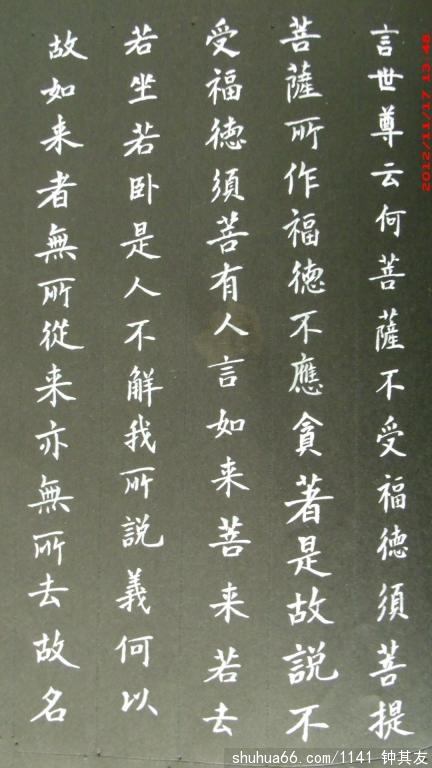 言世尊云何菩薩不受福德須菩提
菩薩所作福德不應貪著是故説不
受福德須菩有人言如来菩来若去
若坐若卧是人不解我所説義何以
故如来者無所從来亦無所去故名
2012/11/17 13:48
shuhua66.com/1141 钟其友